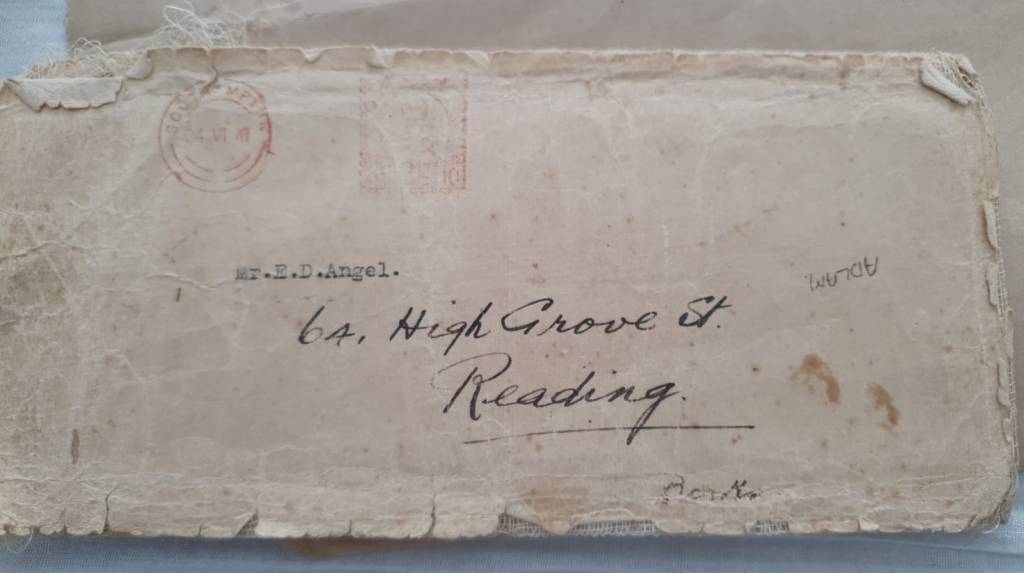 SOUTHAMPTON
4 VI 41
Mr.E.D.Angel.
ADLAM
64, High Grove St.
Reading.
Berks.